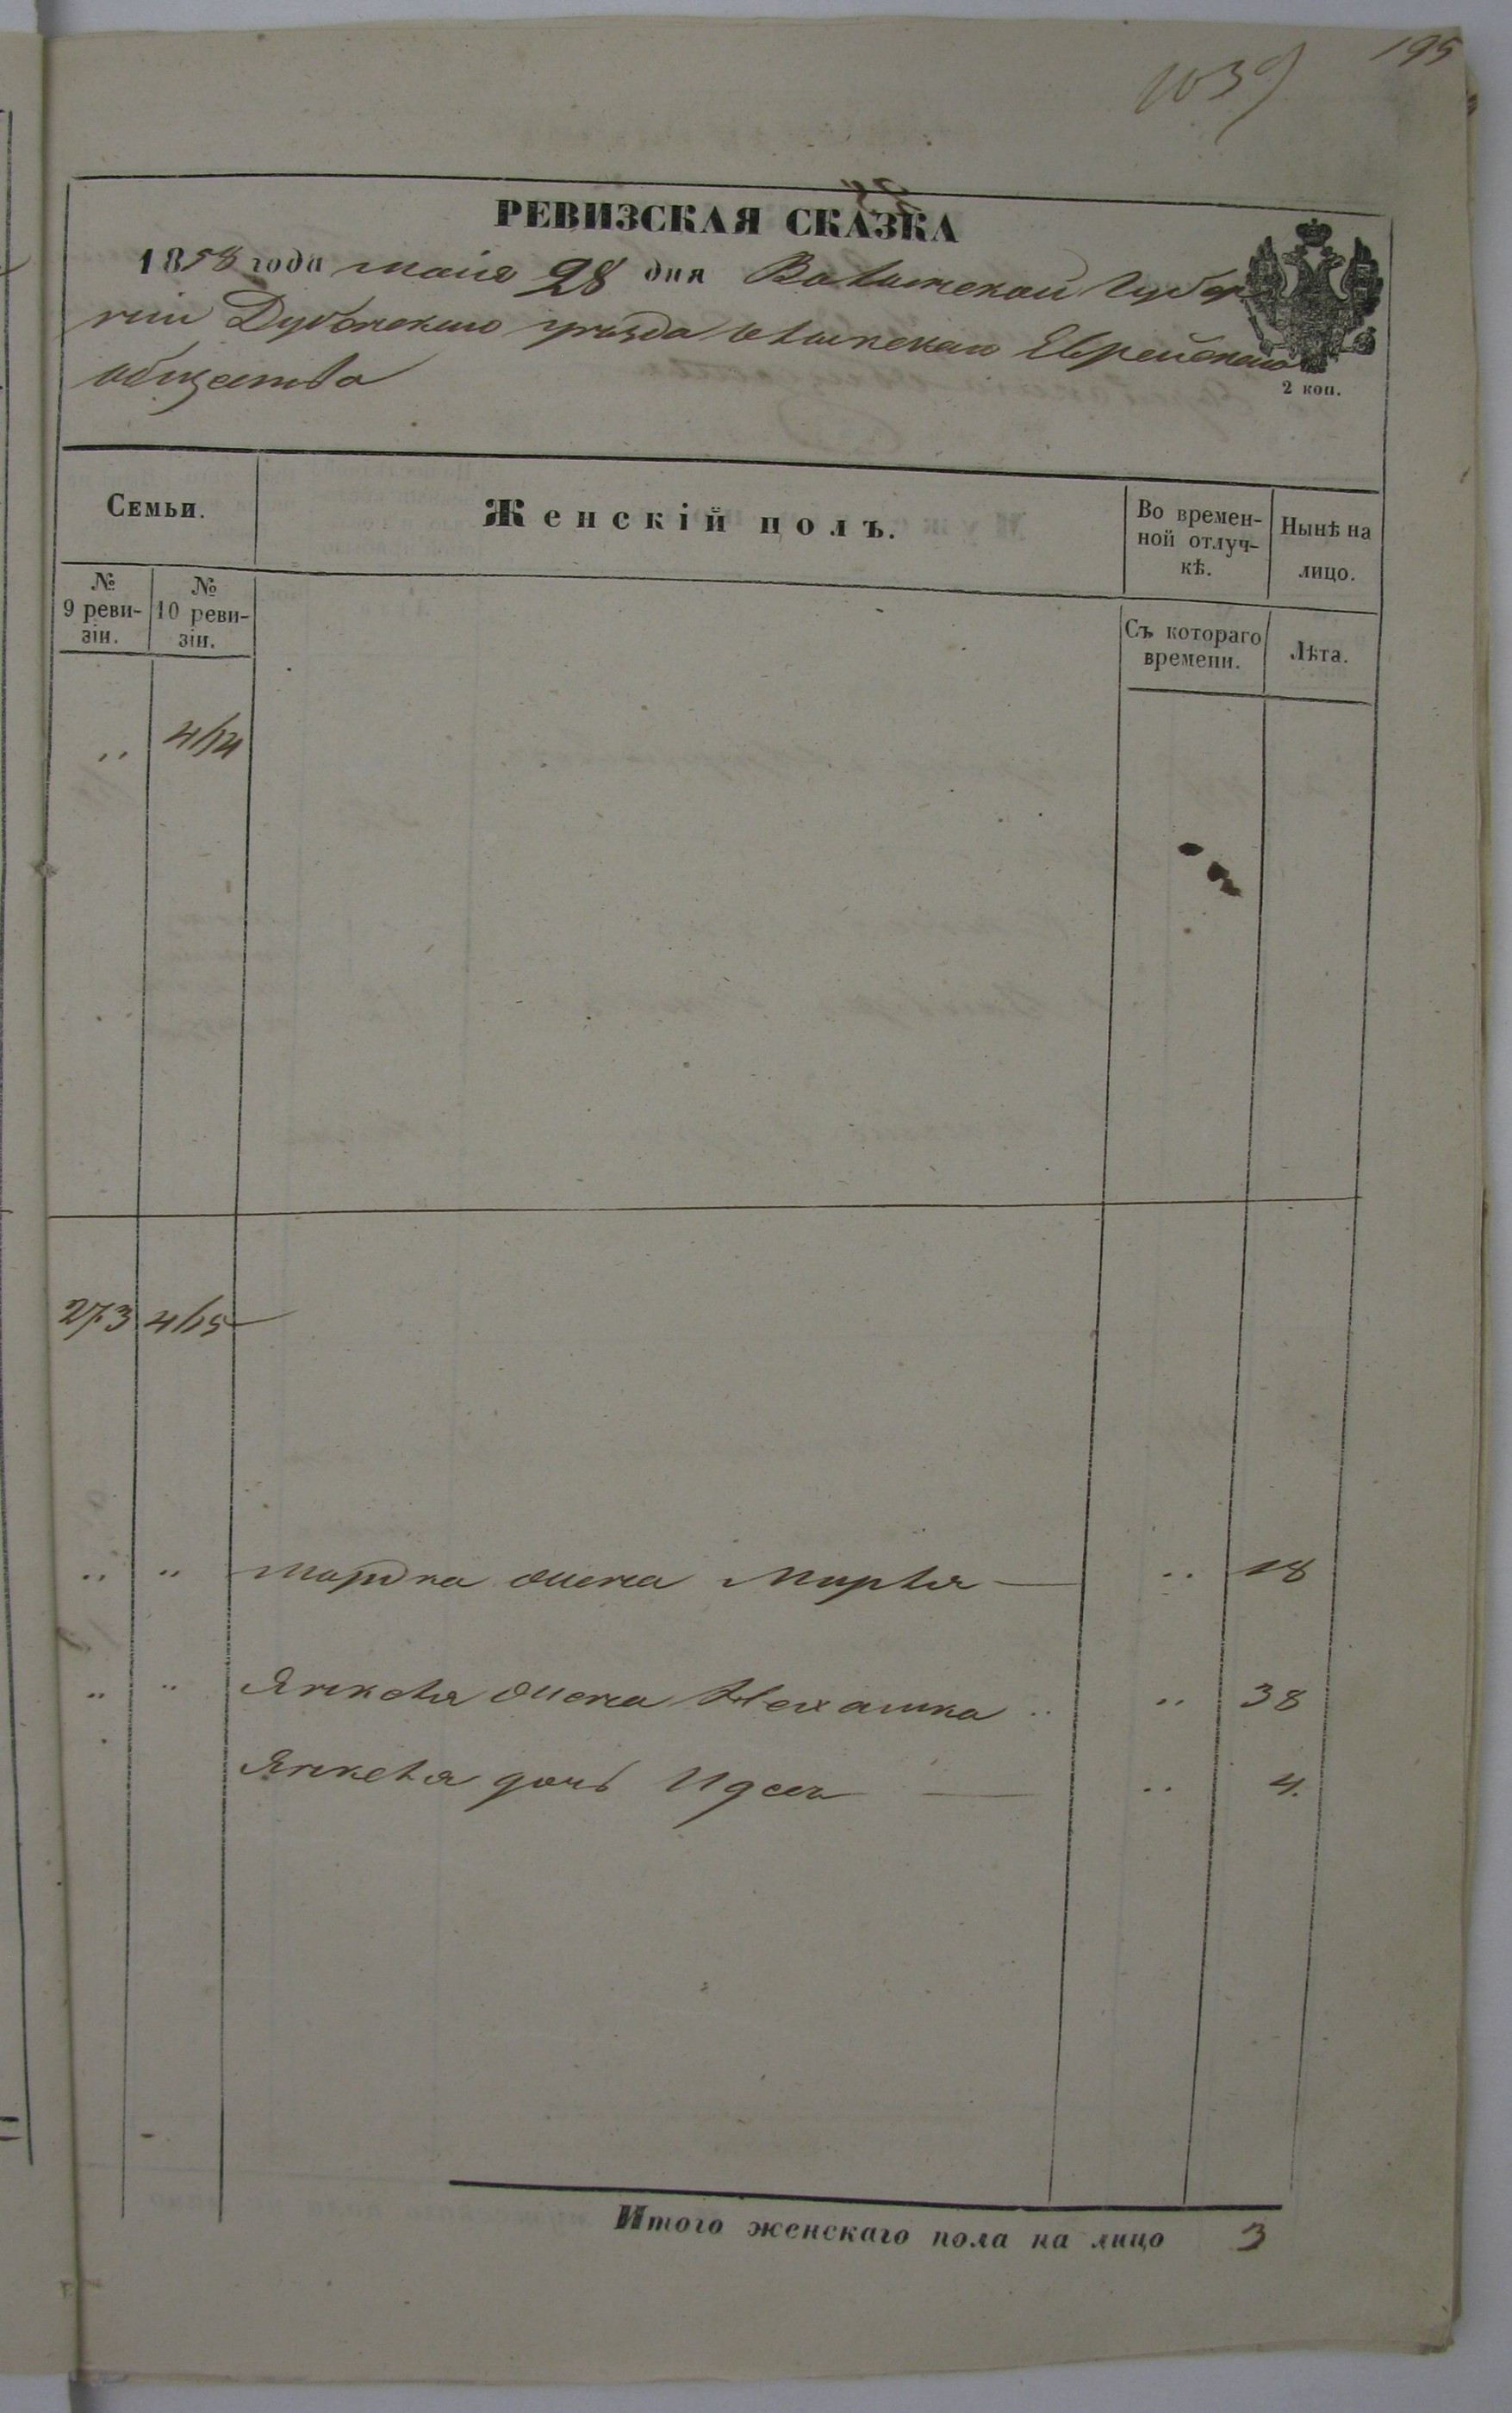 195
1039
РЕВИЗСКАЯ СКАЗКА
1858 года маія 28 дня Волынской Губер
ніи Дубенскаго уѣзда Еврейскаго
общества
2 коп.
Семьи.
Женскій полъ.
Во времен-
ной отлуч-
кѣ.
Нынѣ на
лицо.
№
9 реви-
зіи.
№
10 реви-
зіи.
Съ котораго
времени.
Лѣта.
„ 414
273 415
„ „ Мордка жена Мирля — „ 18
„ „ Янкеля жена Нехамка „ „ 38
Янкеля дочь Идес — „ 4.
Итого женскаго пола на лицо 3